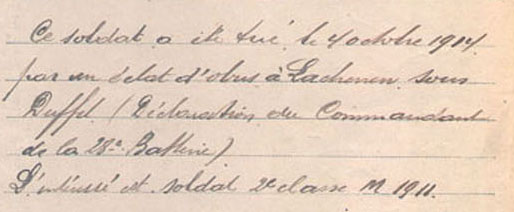 Ce soldat a été tué le 4 octobre 1914
par un éclat d'obus à Lachenen sous
Duffel (Déclaration du Commandant
de la 28e Batterie)
L'intéressé est soldat 2e classe M 1911.